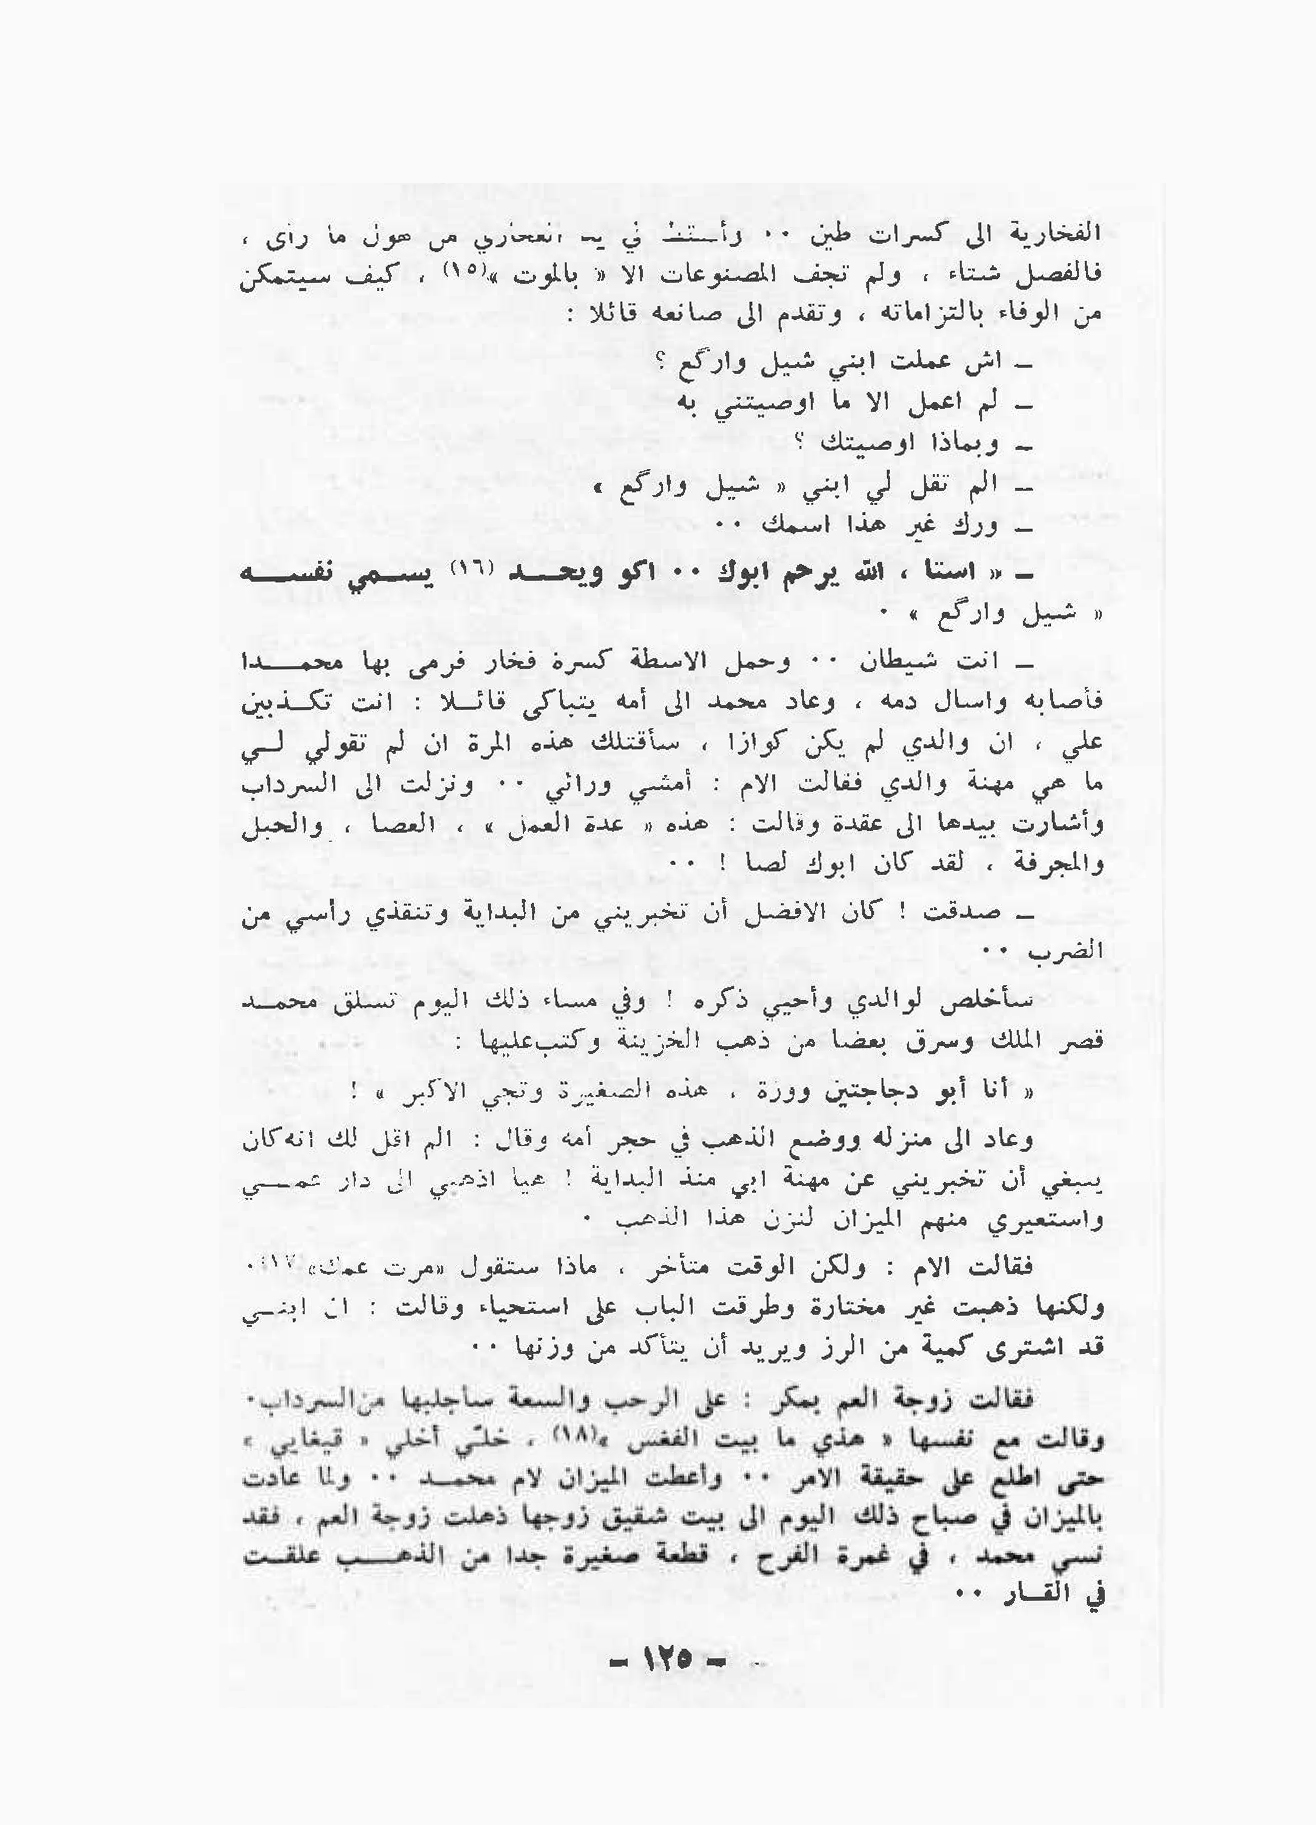 الفخارية الى كسرات طين ٠٠ في ما رأى ،
فالفصل شتاء ، ولم تجف المصنوعات الا « بالموت »(١٥) ، كيف سيتمكن
من الوفاء بالتزاماته ، وتقدم الى صانعه قائلا :
ــ اش عملت ابني شيل وارگع ؟
ــ لم اعمل الا ما اوصيتني به
ــ وبماذا اوصيتك ؟
ــ الم تقل لي ابني « شيل وارگع »
ــ ورك غير هذا اسمك ٠٠
ــ « استا ، الله يرحم ابوك ٠٠ اكو ويحـــد (١٦) يســمي نفســـه
« شيل وارگع » ٠
ــ انت شيطان ٠٠ وحمل الاسطة كسرة فخار فرمى بها محمـــدا
فأصابه واسال دمه ، وعاد محمد الى أمه يتباكى قائــلا : انت تكــذبين
علي ، ان والدي لم يكن كوازا ، سأقتلك هذه المرة ان لم تقولي لــي
ما هي مهنة والدي فقالت الام : أمشي ورائي ٠٠ ونزلت الى السرداب
وأشارت بيدها الى عقدة وقالت : هذه « عدة العمل » ، العصا ، والحبل
والمجرفة ، لقد كان ابوك لصا ! ٠٠
ــ صدقت ! كان الافضل أن تخبريني من البداية وتنقذي رأسي من
الضرب ٠٠
سأخلص لوالدي وأحيي ذكره ! وفي مساء ذلك اليوم تسلق محمــد
قصر الملك وسرق بعضا من ذهب الخزينة وكتب عليها :
« أنا أبو دجاجتين ووزة ، هذه الصغيرة وتجي الاكبر » !
وعاد الى منزله ووضع الذهب في حجر أمه وقال : الم اقل لك انه كان
ينبغي أن تخبريني عن مهنة ابي منذ البداية ! هيا اذهبي الى دار عمــي
واستعيري منهم الميزان لنزن هذا الذهب ٠
فقالت الام : ولكن الوقت متأخر ، ماذا ستقول «مرت عمك» (١٧)٠
ولكنها ذهبت غير مختارة وطرقت الباب على استحياء وقالت : ان ابنــي
قد اشترى كمية من الرز ويريد أن يتأكد من وزنها ٠٠
فقالت زوجة العم بمكر : على الرحب والسعة سأجلبها من السرداب٠
وقالت مع نفسها « هذي ما بيت الفغس »(١٨) ، خلـّي أخلي « قيغايي »
حتى اطلع على حقيقة الامر ٠٠ وأعطت الميزان لام محمــد ٠٠ ولما عادت
بالميزان في صباح ذلك اليوم الى بيت شقيق زوجها ذهلت زوجة العم ، فقد
نسي محمد ، في غمرة الفرح ، قطعة صغيرة جدا من الذهـــب علقــت
في القــار ٠٠
ــ ١٢٥ ــ